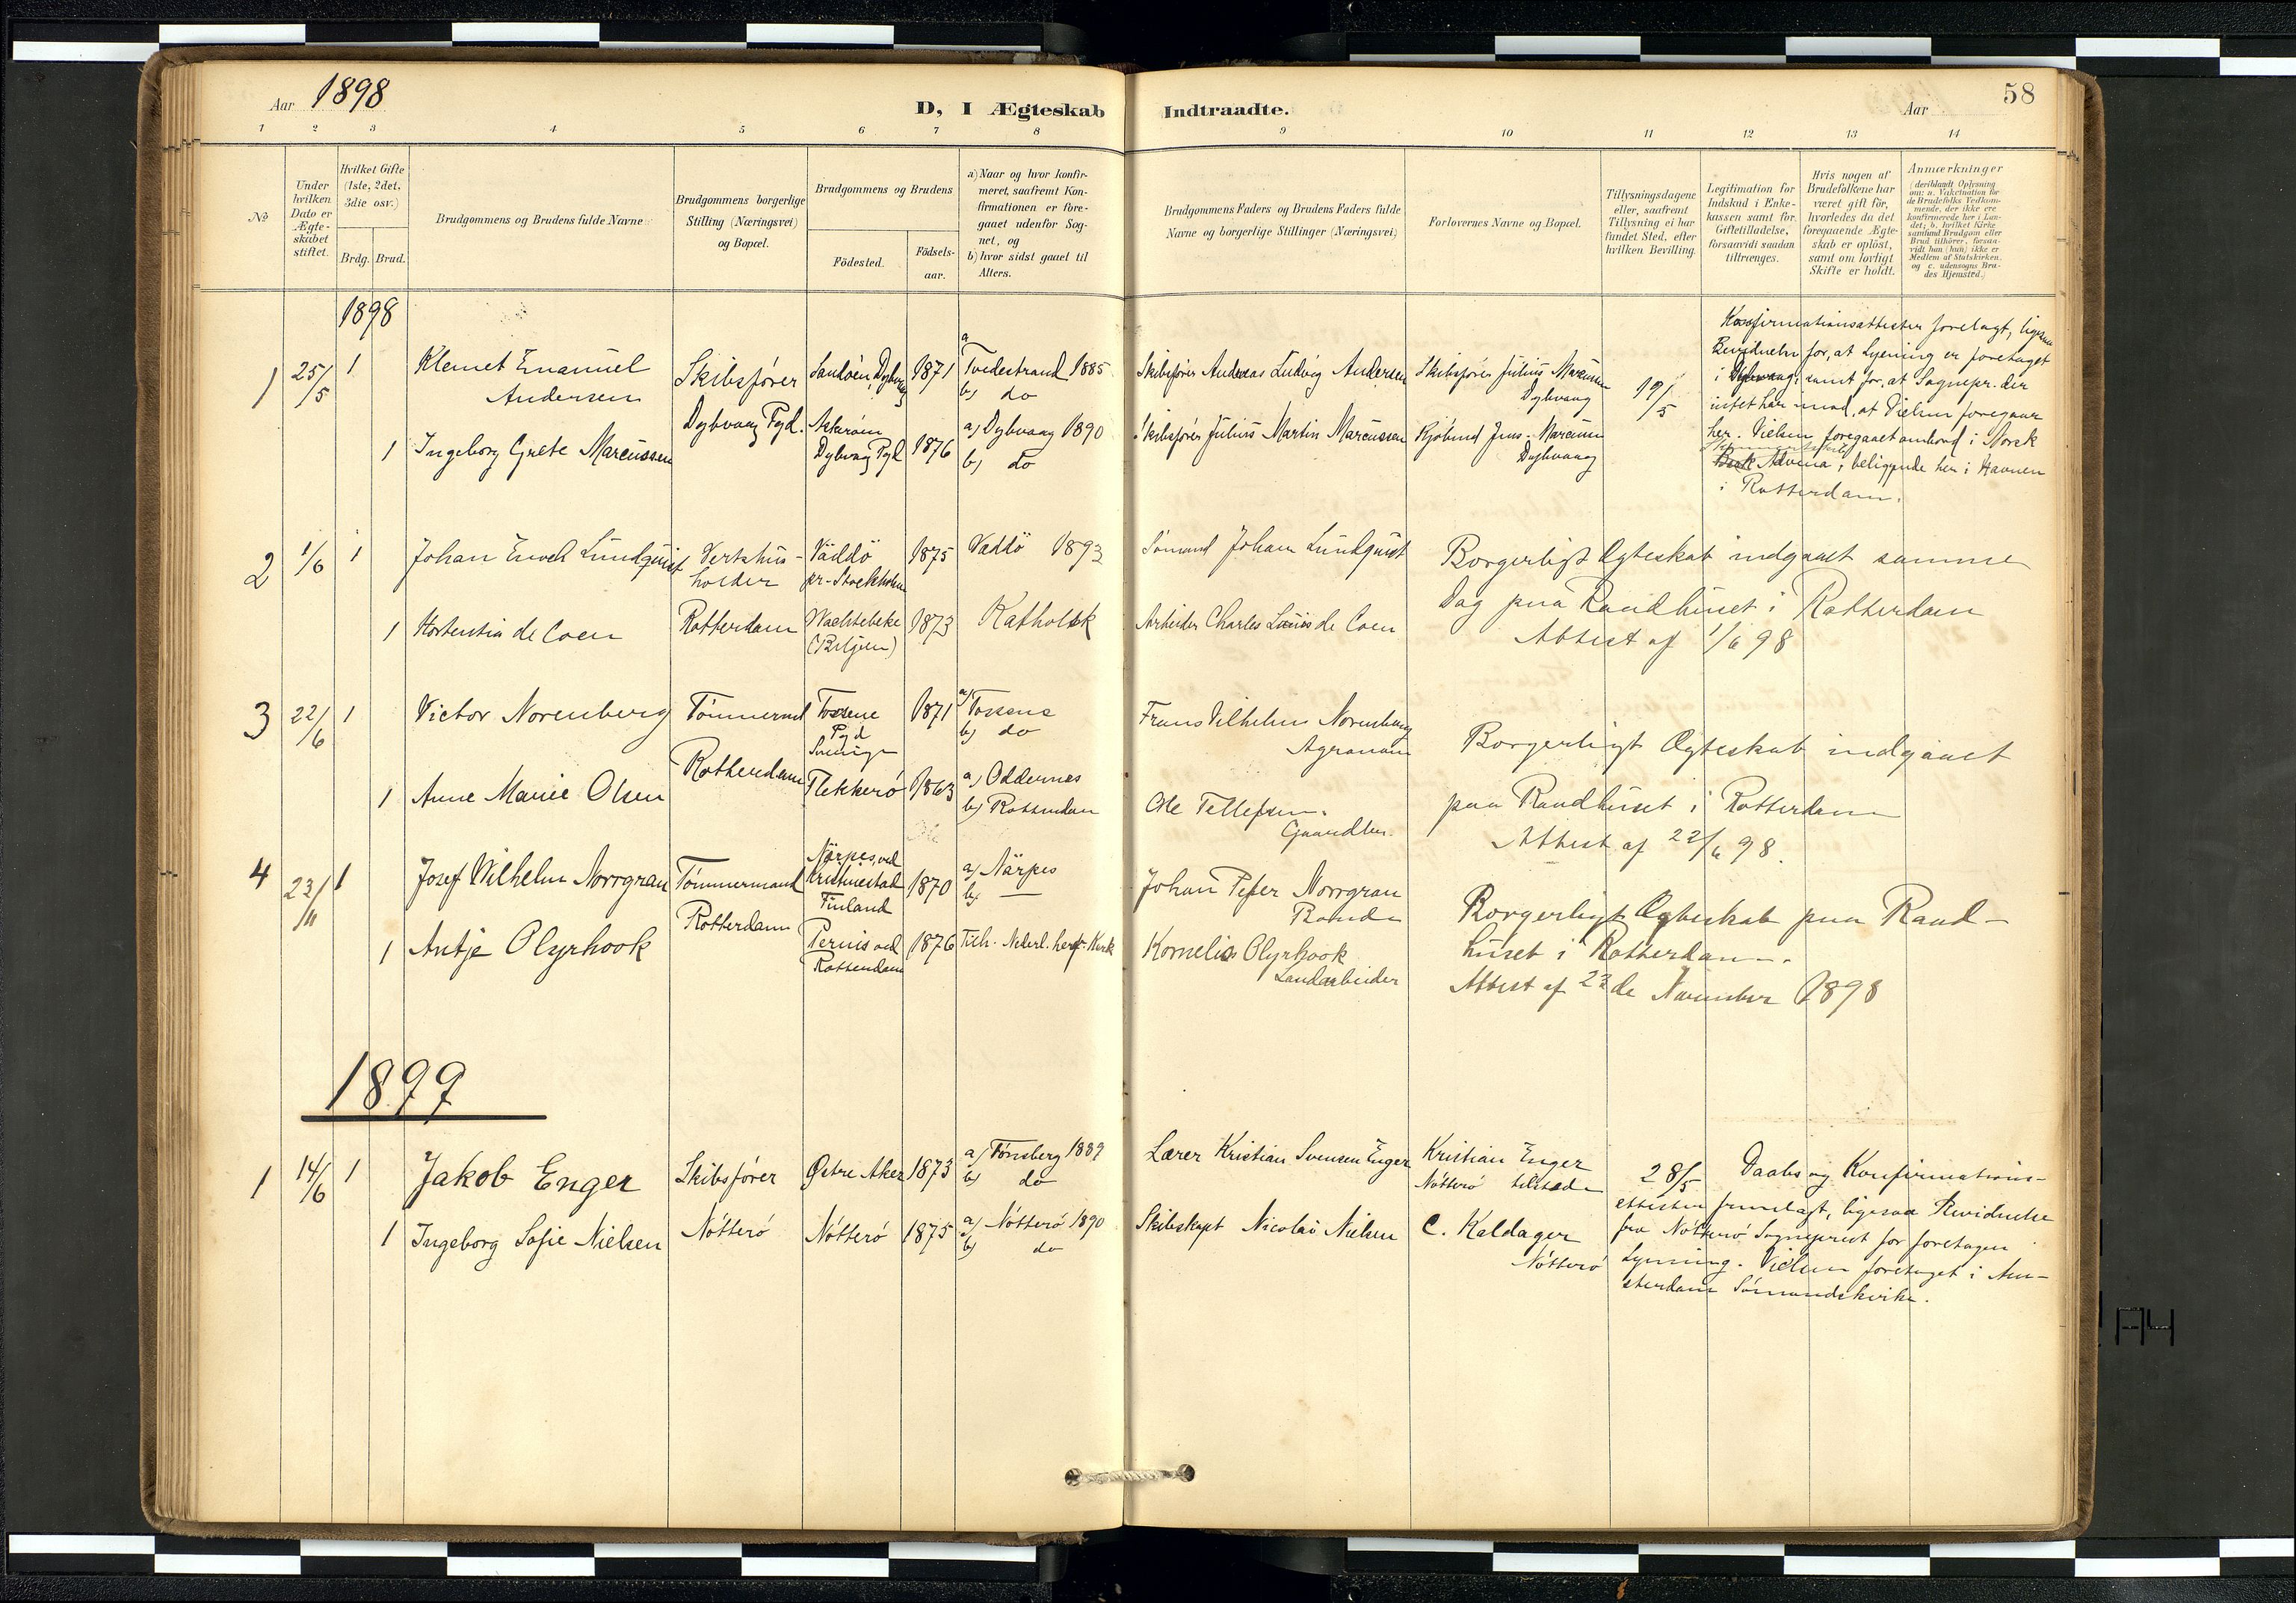 Aar 1898
D, I Ægteskab
Indtraadte.
Aar
58
1 2 3 4 5 6 7 8 9 10 11 12 13 14
No
Under hvilken Dato er Ægte-skabet stiftet.
Hvilket Gifte (1ste, 2det, 3die osv.)
Brdg. Brud.
Brudgommens og Brudens fulde Navne
Brudgommens borgerlige Stilling (Næringsvei) og Bopæl.
Brudgommens og Brudens
Födested.
Födsels-aar.
a) Naar og hvor konfir-
meret, saafremt Kon-
firmationen er fore-
gaaet udenfor Sog-
net, og
b) hvor sidst gaaet til
Alters.
Brudgommens Faders og Brudens Faders fulde
Navne og borgerlige Stillinger (Næringsvei)
Forlovernes Navne og Bopæl.
Tillysningsdagene
eller, saafremt
Tillysning ei har
fundet Sted, efter
hvilken Bevilling.
Legitimation for
Indskud i Enke-
kassen samt for
Giftetilladelse,
forsaavidt saadan
tiltrænges.
Hvis nogen af
Brudefolkene har
været gift för,
hvorledes da det
foregaaende Ægte-
skab er oplöst,
samt om lovligt
Skifte er holdt.
Anmærkninger
(deriblandt Oplysning
om: a. Vakcination for
de Brudefolks Vedkom-
mende, der ikke ere
konfirmerede her i Lan-
det; b. hvilket Kirke
samfund Brudgom eller
Brud tilhörer, forsaa-
vidt han (hun) ikke er
Medlem af Statskirken.
og c. udensogns Bru-
des Hjemsted.)
1898
1 25/5 1 Klemet Emanuel
Andersen
Skibsfører
Dybvaag Pgd.
Sandøen, Dybvaag
1871
a
Tvedestrand 1885
b) do
Skibsfører Andreas Ludvig Andersen
Skibsfører Julius Marcussen
Dybvaag
19/5
1 Ingeborg Grete Marcussen
Askerøen
Dybvaag Pgd
1876
a) Dybvaag 1890
b) do
Skibsfører Julius Martin Marcussen
Kjøbmd Jens Marcussen
Dybvaag
Konfirmationsattester forelagt, ligesaa
Bevidnelse for, at Lysning er foretaget
i Dybvaag, samt for, at Sognepr. der
intet har imod, at Vielsen foregaar
her. Vielsen foregaaet ombord i Norsk
Bark Advena, beliggende her i Havnen
i Rotterdam.
2 1/6 1 Johan Enoch Lundquist
Vertshus-
holder
Rotterdam
Väddö
pr. Stockholm
1875
Väddö 1893
Sømand Johan Lundquist
1 Hortentia de Coen
Wachtebeke
(Belgien)
1873
Katholsk
Arbeider Charles Louis de Coen
Borgerligt Ægteskab indgaaet samme
Dag paa Raadhuset i Rotterdam
Attest af 1/6 98
3 22/6 1 Victor Norenberg
Tømmermd
Rotterdam
Tossene
Pgd
Sverige
1871
a) Tossene
b) do
Frans Vilhelm Norenberg
Agronom
1 Anne Marie Olsen
Flekkerø
1863
a) Oddernes
b) Rotterdam
Ole Tellefsen
Gaardbr.
Borgerligt Ægteskab indgaaet
paa Raadhuset i Rotterdam
Attest af 22/6 98.
4 23/11 1 Josef Wilhelm Norrgran
Tømmermand
Rotterdam
Närpes, ved
Kristinestad
Finland
1870
a) Närpes
b) —
Johan Peter Norrgran
Bonde
1 Antje Olyrhook
Pernis ved
Rotterdam
1876
Tilh. Nederl. herf. Kerk
Kornelis Olyrhook
Landarbeider
Borgerligt Ægteskab paa Raad-
huset i Rotterdam.
Attest af 23de November 1898
1899
1 14/6 1 Jakob Enger
Skibsfører
Nötterö
Østre Aker
1873
a) Tønsberg 1889
b) do
Lærer Kristian Svensen Enger
Kristian Enger
Nötterö tilstede
28/5
1 Ingeborg Sofie Nielsen
Nötterö
1875
a) Nötterö 1890
b) do
Skibskapt Nicolai Nielsen
C. Kaldager
Nötterö
Daabs og Konfirmations-
attester fremlagt, ligesaa Bevidnelse
fra Nötterö Sogneprest for foretagen
Lysning. Vielsen foretaget i Am-
sterdam Sømandskirke.